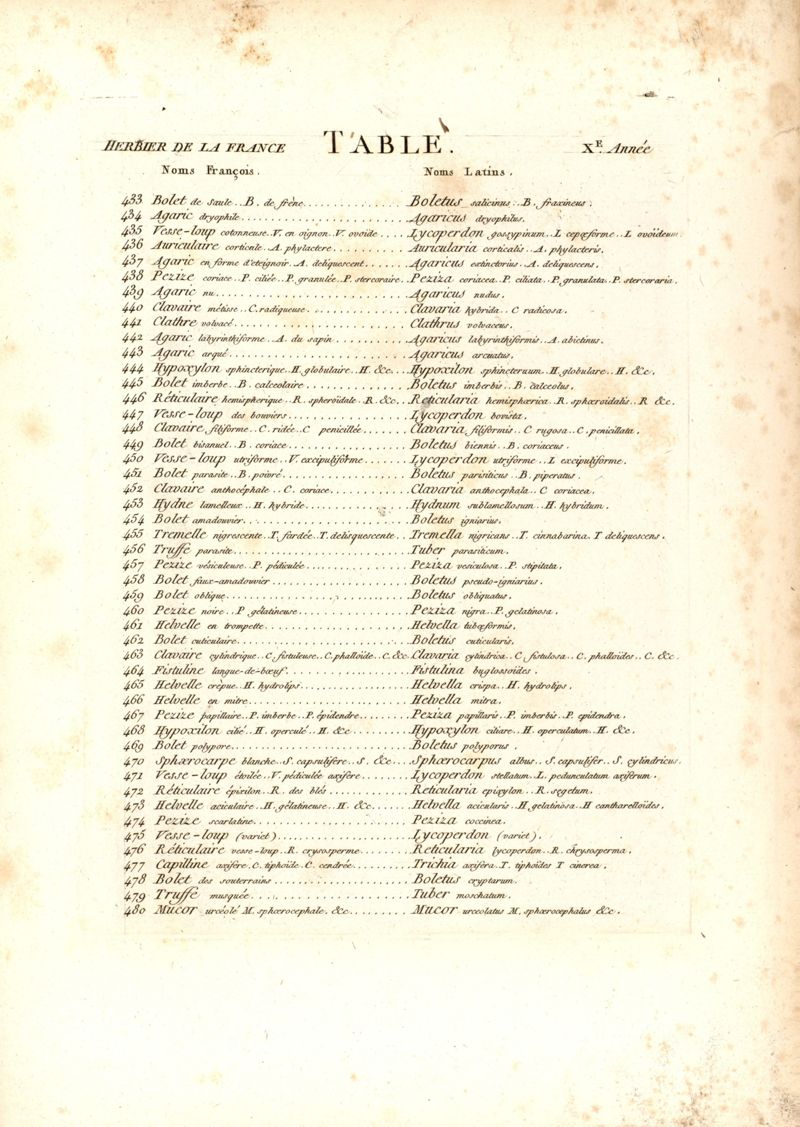 HERBIER DE LA FRANCE TABLE. X.E Année
Noms François. Noms Latins.
433 Bolet de Saule..B. de frêne.............Boletus salicinus..B. fraxineus.
434 Agaric dryophile.............Agaricus dryophilus.
435 Vesse-loup cotonneuse..V. en oignon..V. ovoïde....Lycoperdon gossypinum..L cepæforme..L ovoïdeum.
436 Auriculaire corticale..A. phylactere..........Auricularia corticalis..A. phylacteris.
437 Agaric en forme d'eteignoir..A. deliquescent......Agaricus extinctorius..A. deliquescens.
438 Pezize coriace..P. ciliée..P. granulée..P. stercoraire.Peziza coriacea..P. ciliata..P. granulata..P. stercoraria.
439 Agaric nu.............Agaricus nudus.
440 Clavaire métisse..C. radiqueuse.............Clavaria hybrida..C radicosa.
441 Clathre volvacé.............Clathrus volvaceus.
442 Agaric labyrinthiforme..A. du sapin...........Agaricus labyrinthiformis..A. abietinus.
443 Agaric arqué.............Agaricus arcuatus.
444 Hypoxylon sphincterique..H. globulaire..H. &c...Hypoxilon sphincteruum..H. globulare..H. &c.
445 Bolet imberbe..B. calceolaire.............Boletus imberbis..B. calceolus.
446 Réticulaire hemispherique..R. spheroïdale..R. &c..Reticularia hemisphœrica..R. sphœroïdalis..R &c.
447 Vesse-loup des bouviers.............Lycoperdon bovista.
448 Clavaire filiforme..C ridée..C penicillée......Clavaria filiformis..C rugosa..C. penicillata.
449 Bolet bisanuel..B. coriace.............Boletus biennis..B. coriaceus.
450 Vesse-loup utriforme..V. excipuliforme.......Lycoperdon utriforme..L excipuliforme.
451 Bolet parasite..B. poivré.............Boletus parisiticus..B. piperatus.
452 Clavaire anthocéphale..C. coriace............Clavaria anthocephala..C coriacea.
453 Hydne lamelleux..H. hybride.............Hydnum sublamellosum..H. hybridum.
454 Bolet amadouvier.............Boletus igniarius.
455 Tremelle nigrescente..T. fardée..T. deliquescente..Tremella nigricans..T. cinnabarina. T deliquescens.
456 Truffe parasite.............Tuber parasiticum.
457 Pezize vésiculeuse..P. pédiculée.............Peziza vesiculosa..P. stipitata.
458 Bolet faux-amadouvier.............Boletus pseudo-igniarius.
459 Bolet oblique.............Boletus obliquatus.
460 Pezize noire..P gélatineuse.............Peziza nigra..P. gelatinosa.
461 Helvelle en trompette.............Helvella tubæformis.
462 Bolet cuticulaire.............Boletus cuticularis.
463 Clavaire cylindrique..C. fistuleuse..C. phalloïde..C. &c.Clavaria cylindrica..C fistulosa..C. phalloïdes..C. &c.
464 Fistuline langue-de-bœuf.............Fistulina buglossoïdes.
465 Helvelle crépue..H. hydrolips.............Helvella crispa..H. hydrolips.
466 Helvelle en mitre.............Helvella mitra.
467 Pezize papillaire..P. imberbe..P. épidendre........Peziza papillaris..P. imberbis..P. epidendra.
468 Hypoxilon cilié..H. operculé..H. &c..........Hypoxylon ciliare..H. operculatum..H. &c.
469 Bolet polypore.............Boletus polyporus.
470 Sphœrocarpe blanche..S. capsulifère..S. &c...Sphœrocarpus albus..S. capsulifer..S. cylindricus.
471 Vesse-loup étoilée..V. pédiculée axifère........Lycoperdon stellatum..L. pedunculatum axiferum.
472 Réticulaire épixilon..R. des blés.............Reticularia epixylon..R. segetum.
473 Helvelle aciculaire..H. gélatineuse..H. &c......Helvella acicularis..H. gelatinosa..H cantharelloïdes.
474 Pezize scarlatine.............Peziza coccinea.
475 Vesse-loup (variet).............Lycoperdon (variet).
476 Réticulaire vesse-loup..R. crysosperme........Reticularia lycoperdon..R. chrysosperma.
477 Capilline axifère..C. tiphoïde..C. cendrée........Trichia axifera..T. tiphoïdes T cinerea.
478 Bolet des souterrains.............Boletus cryptarum.
479 Truffe musquée.............Tuber moschatum.
480 Mucor urcéolé M. sphœrocephale. &c.........Mucor urceolatus M. sphœrocephalus &c.